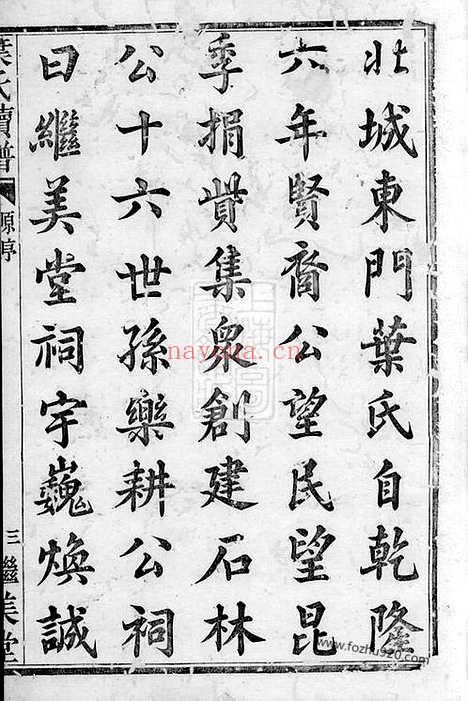 北城東門葉氏自乾隆
六年賢裔公望民望昆
季捐貲集衆創建石林
公十六世孫樂耕公祠
曰繼美堂祠宇巍煥誠
葉氏續譜
源序
三
繼美堂
nayona.cn
www.fozhu920.com